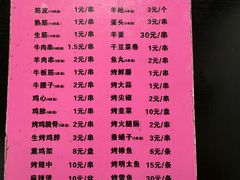 筋皮 1元/串 羊枪 3元/个
熟筋 1元/串 蛋头 3元/串
生筋 1元/串 羊蛋 30元/串
牛肉串 1元/串 干豆菜卷 1元/串
羊肉串 1元/串 鱼丸 2元/串
牛板筋 1元/串 烤鲜蘑 1元/串
牛腰子 2元/串 烤大蒜 1元/串
鸡心 1元/串 烤尖椒 2元/串
鸡胗 1元/串 烤韭菜 1元/串
鸡脆骨 1元/串 烤火腿肠 2元/串
生烤鸡脖 3元/串 蚕蛹子 3元/串
熏鸡架 8元/盘 烤棒鱼 6元/条
烤翅中 10元/盘 烤明太鱼 15元/条
麻辣烫 10元/盆 烤 鱼 30元/条